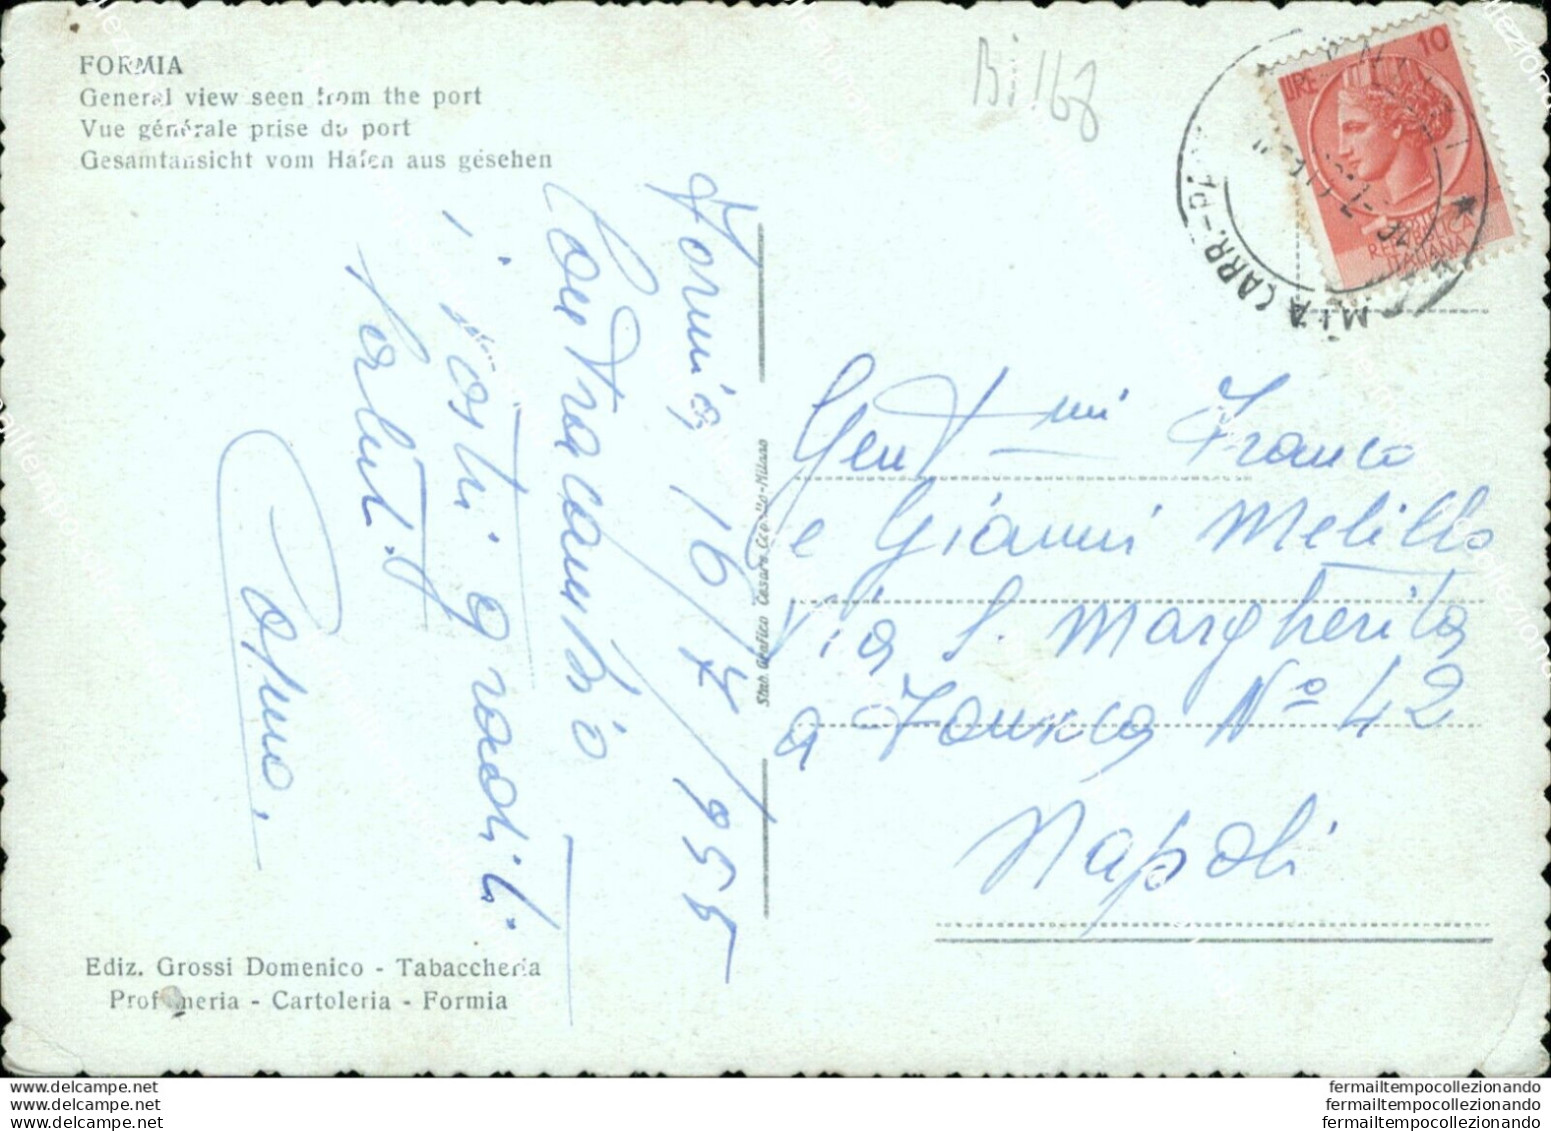 FORMIA
General view seen from the port
Vue générale prise du port
Gesamtansicht vom Hafen aus gesehen
Bi 168
LIRE 10
REPUBBLICA
ITALIANA
MIA (ARR.-PART
Formia 16/7/955
Contraccambio
i vostri graditi
saluti.
Cosmo.
Stab. Grafico Cesare Capello-Milano
Gent mi Franco
e Gianni Melillo
Via S. Margherita
a Fonseca Nº 42
Napoli
Ediz. Grossi Domenico - Tabaccheria
Profumeria - Cartoleria - Formia
www.delcampe.net
www.delcampe.net
www.delcampe.net
fermailtempocollezionando
fermailtempocollezionando
fermailtempocollezionando